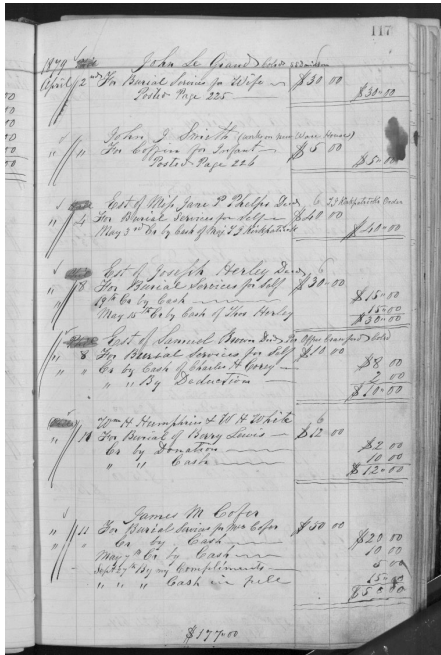 117
1879 John Le Grand
April 2nd For Burial Services for Wife $30 00
Posted Page 225 $30-00
John J. Smith (works on new Ware House)
" " For Coffin for Infant $5 00
Posted Page 226 $5-00
Est of Miss Jane P Phelps Decd 6 T J Kirkpatrick Order
" 4 For Burial Services for Self $40 00
May 3rd Cr by Cash of Maj T J Kirkpatrick $40-00
Est of Joseph Herley Decd 6
" 8 For Burial Services for Self $30-00
19th Cr by Cash $15-00
May 15th Cr by Cash of Thos Herley 15-00
$30-00
Est of Samuel Brown Decd Cold
" 8 For Burial Services for Self $10 00
" " Cr by Cash of Charles H $8 00
" " By Deduction 2 00
$10-00
Wm H. Humphries & W H White 6
" 10 For Burial of Berry Lewis $12 00
Cr by Donation $2 00
" " Cash 10 00
$12-00
James M. Cofer
" 11 For Burial Services for Mrs Cofer $50 00
" " Cr by Cash $20 00
May 7th Cr by Cash 10 00
Sept 27th By my Compliments 5 00
" " " Cash in full 15-00
$50 00
$177-00